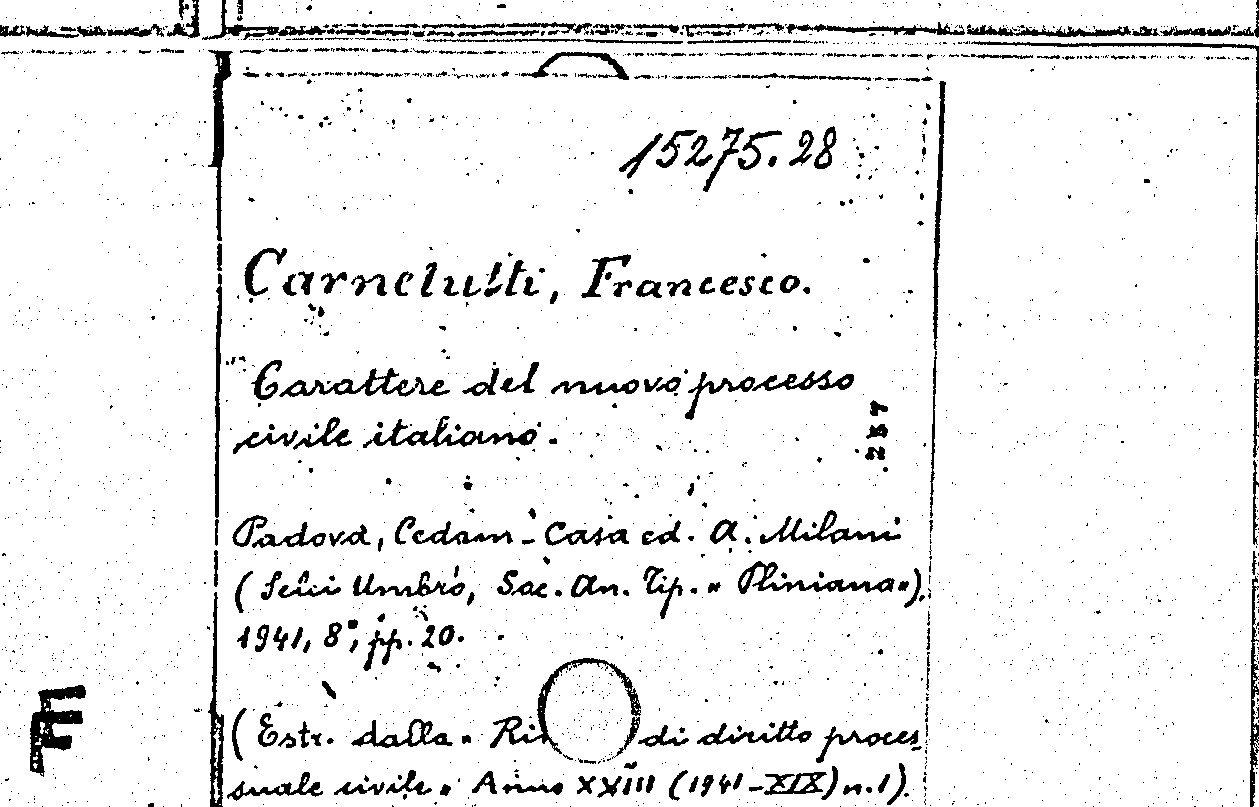 15275.28
Carnelutti, Francesco.
Carattere del nuovo processo
civile italiano.
257
Padova, Cedam - Casa ed. A. Milani
(Selci Umbro, Soc. An. Tip. "Pliniana"),
1941, 8°, pp. 20.
(Estr. dalla " Ri di diritto proces-
suale civile " Anno XXIII (1941-XIX) n.1).
F